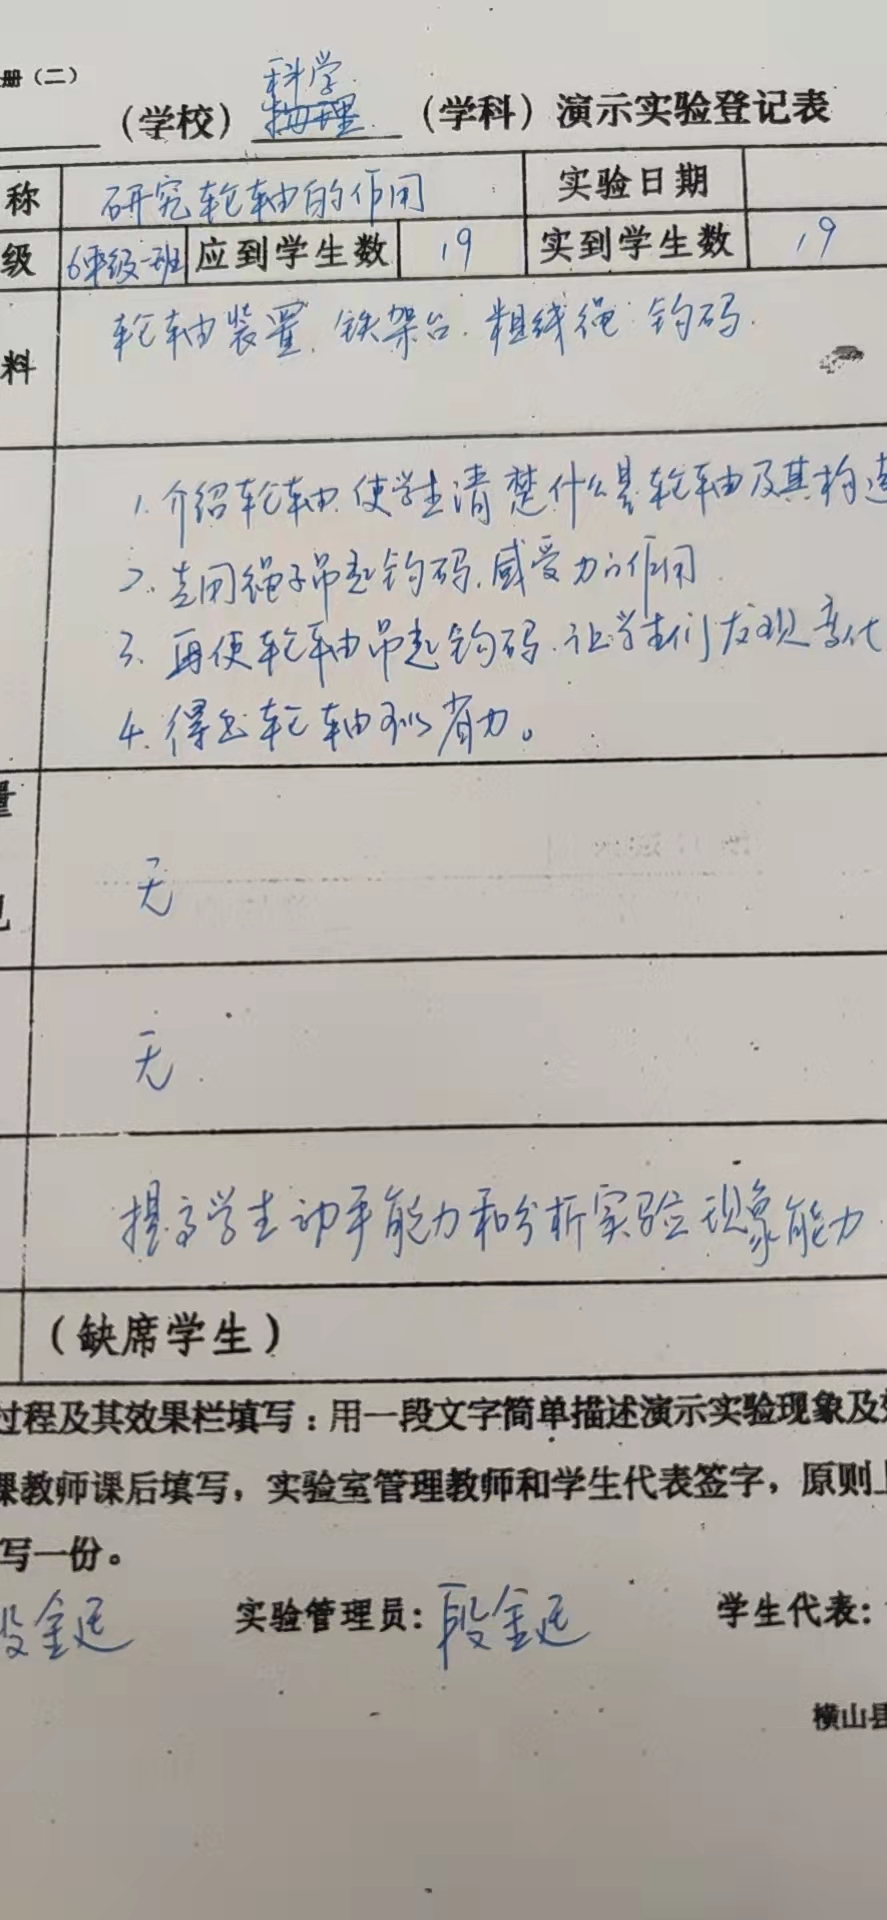 册（二）
科学
（学校）物理（学科）演示实验登记表
称 研究轮轴的作用 实验日期
级 6年级一班 应到学生数 19 实到学生数 19
料 轮轴装置.铁架台.粗线绳.钩码.
1.介绍轮轴.使学生清楚什么是轮轴及其构造
2.先用绳子吊起钩码.感受力的作用
3.再使轮轴吊起钩码.让学生们发现变化
4.得出轮轴可以省力。
量
无
无.
提高学生动手能力和分析实验现象能力
（缺席学生）
过程及其效果栏填写：用一段文字简单描述演示实验现象及
课教师课后填写，实验室管理教师和学生代表签字，原则上
写一份。
段金廷 实验管理员：段金廷 学生代表：
横山县